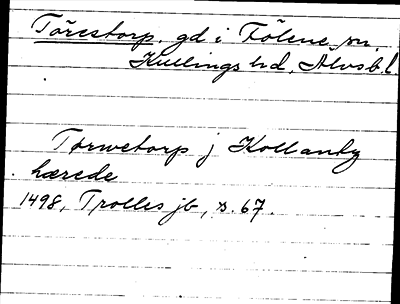 Torestorp. gd i Fölene sn.
Kullings hd, Älvsb. l.
Torwetorp j Kollandz
hærede
1498, Trolles jb, s. 67.